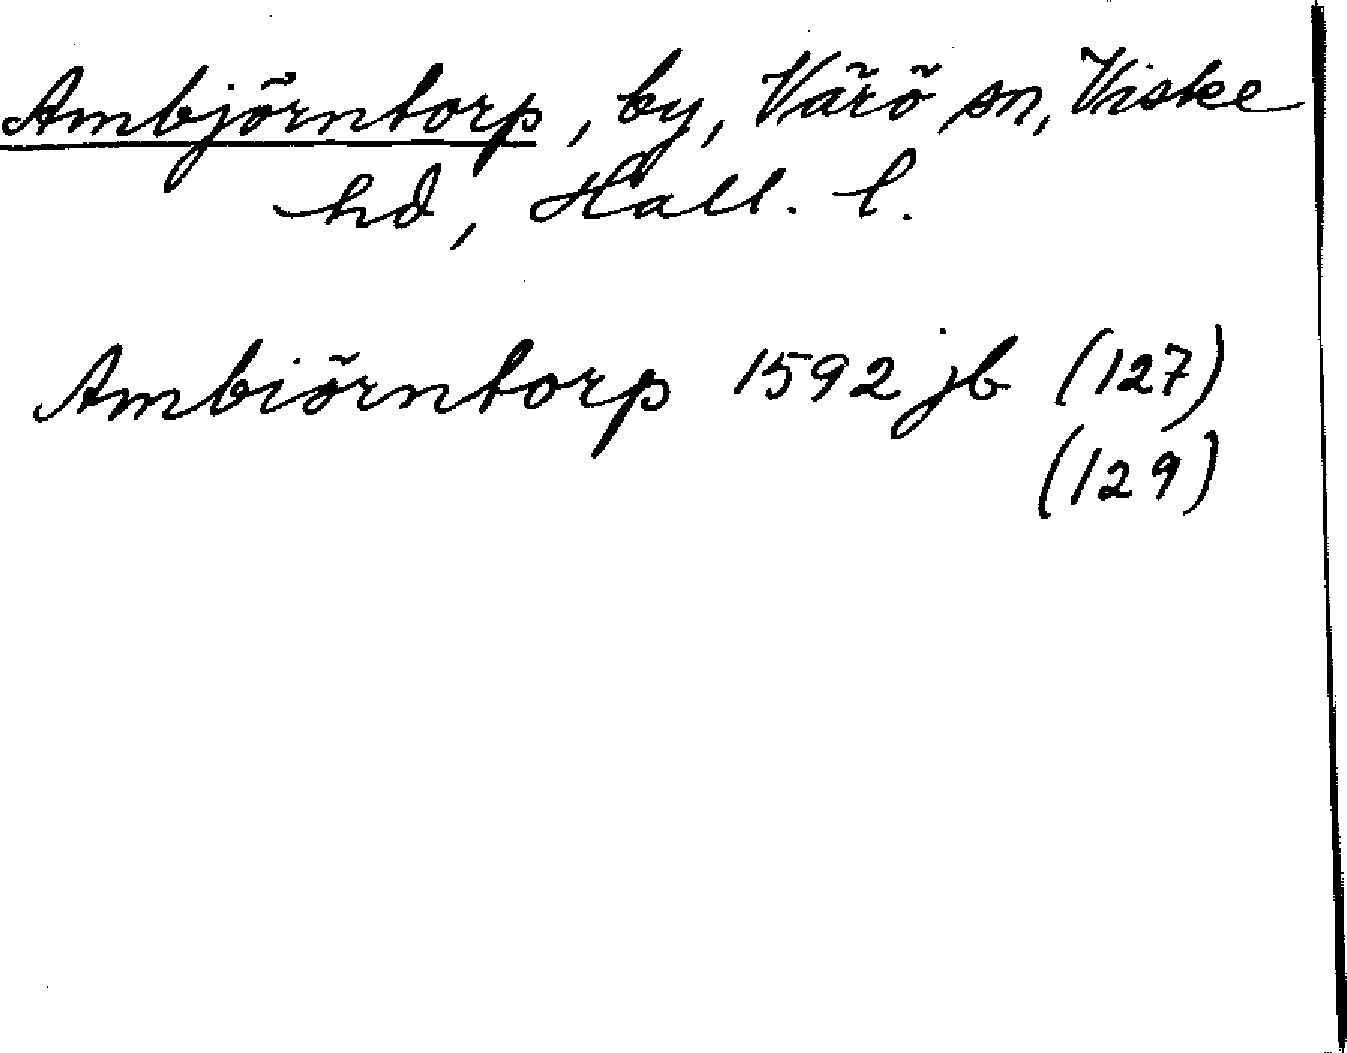 Ambjörntorp, by, Värö sn, Viske
hd, Hall. l.
Ambiörntorp 1592 jb (127)
(129)